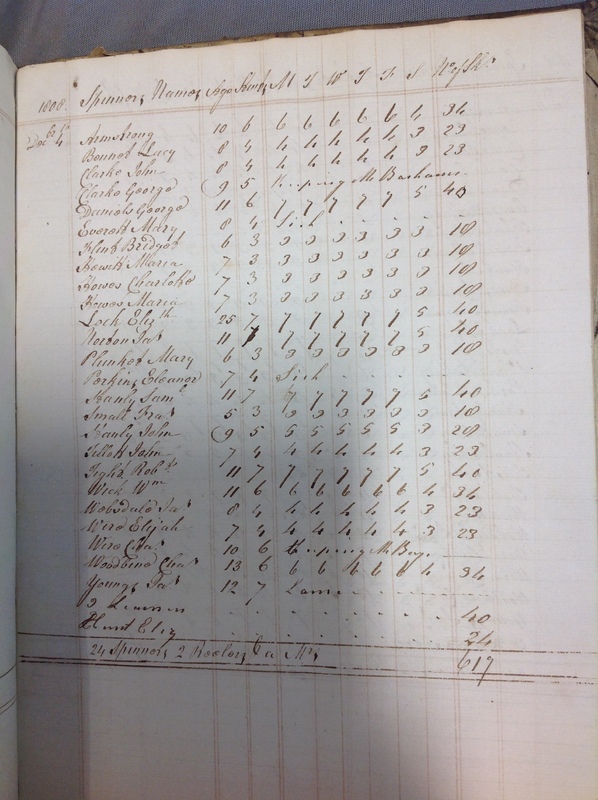 1808. Spinners Names Age Stint M T W T F S No. of Sks
Decbr 4 Armstrong 10 6 6 6 6 6 6 4 34
Bennet Lucy 8 4 4 4 4 4 4 3 23
Clarke John 8 4 4 4 4 4 4 3 23
Clarke George (9 5 Keeping Mr
Daniels George 11 6 7 7 7 7 7 5 40
Everett Mary 8 4 Sick . . . . .
Flint Bridget 6 3 3 3 3 3 3 3 18
Maria 7 3 3 3 3 3 3 3 18
Howes Charlotte 7 3 3 3 3 3 3 3 18
Howes Maria 7 3 3 3 3 3 3 3 18
Lock Elizth 25 7 7 7 7 7 7 5 40
Norton Jas 11 7 7 7 7 7 5 40
Plunket Mary 6 3 3 3 3 3 3 3 18
Perkins Eleanor 7 4 Sick . . . . .
Saml 11 7 7 7 7 7 7 5 40
Small Fras 5 3 3 3 3 3 3 3 18
John (9 5 5 5 5 5 5 3 28
John 7 4 4 4 4 4 4 3 23
Robt 11 7 7 7 7 7 7 5 40
Wick Wm 11 6 6 6 6 6 6 4 34
Jas 8 4 4 4 4 4 4 3 23
Elijah 7 4 4 4 4 4 4 3 23
10 6 Keeping Mr
Woodbine Chas 13 6 6 6 6 6 6 4 34
Young Jas 12 7 Lame . . . . .
3 . . . . . . . . 40
Hunt Eliz . . . . . . . . 24
24 Spinners 2 Reelers 617